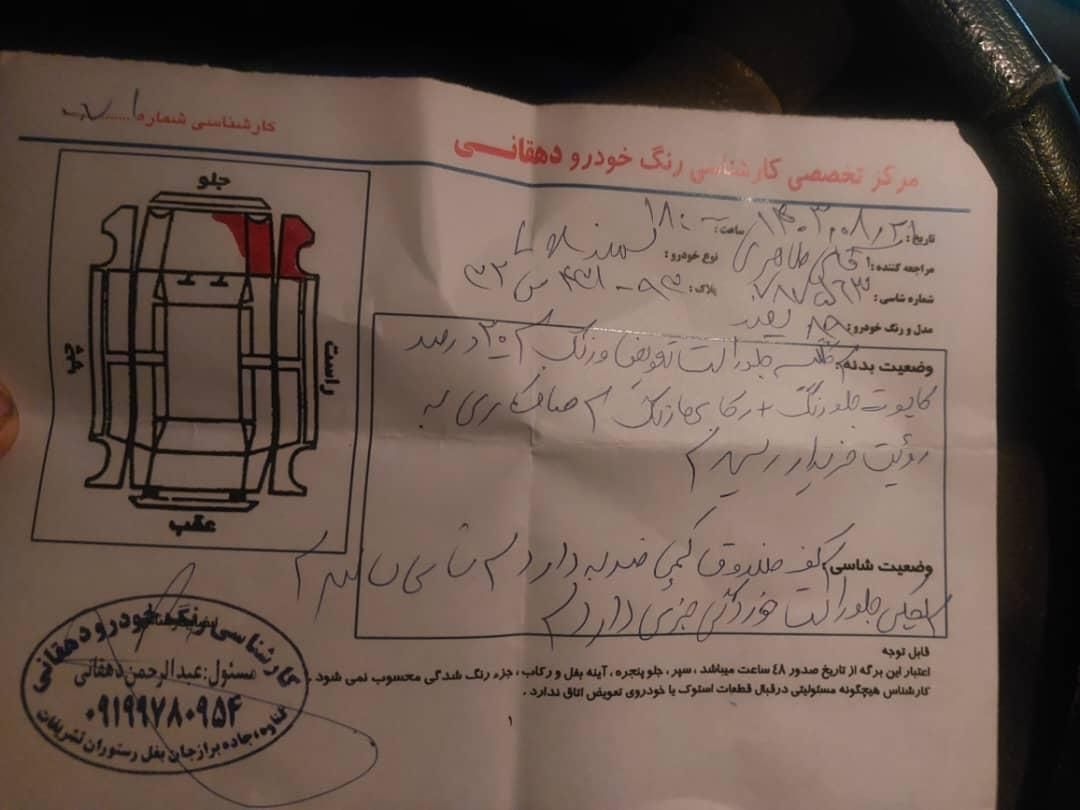 کارشناسی شماره
مرکز تخصصی کارشناسی رنگ خودرو دهقانی
تاریخ: ۱۴۰۳،۰۸،۲۱ ساعت: ۱۸:۰۰
مراجعه کننده: آقای طاهری نوع خودرو: سمند
شماره شاسی: پلاک: ۹۳ - ۴۳۱ س ۳۲
مدل و رنگ خودرو: سفید
جلو
چپ
راست
عقب
وضعیت بدنه: گلگیر جلو راست تعویض و رنگ ۲۰ درصد
کاپوت جلو رنگ + رکابها رنگ صافکاری به
رؤیت خریدار رسید
وضعیت شاسی: کف صندوق کمی ضربه دارد شاسی سالم
سینی جلو راست خوردگی جزئی دارد
قابل توجه
اعتبار این برگه از تاریخ صدور ٤٨ ساعت میباشد ، سپر ، جلو پنجره ، آینه بغل و رکاب ، جزء رنگ شدگی محسوب نمی شود .
کارشناس هیچگونه مسئولیتی درقبال قطعات استوک یا خودروی تعویض اتاق ندارد .
۱
کارشناسی رنگ خودرو دهقانی
مسئول: عبدالرحمن دهقانی
۰۹۱۹۹۷۸۰۹۵۴
گناوه، جاده برازجان بغل رستوران تشریفات